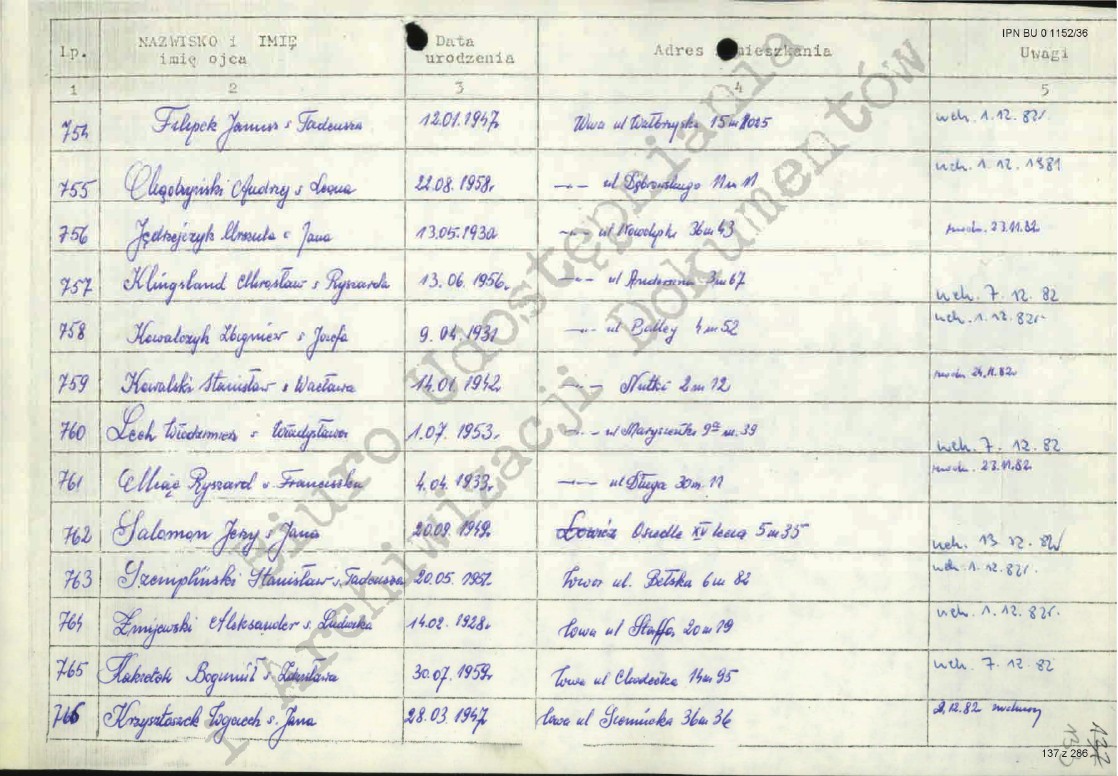 IPN BU 0 1152/36
Lp. NAZWISKO i IMIĘ imię ojca Data urodzenia Adres mieszkania Uwagi
1 2 3 4 5
754 Filipek Janusz s Tadeusza 12.01.1947 Wwa ul Wałbrzyska 15 m wch. 1.12.82r.
755 Andrzej s 22.08.1958r —"— ul Dąbrowskiego 11 m 11 wch. 1.12.1981
756 Jędrzejczyk Urszula c Jana 13.05.193 —"— ul Nowolipki 36 m 43 23.11.82
757 Klingsland Mirosław s Ryszarda 13.06.1956r —"— ul 3 m 67 uch. 7.12.82
758 Kowalczyk Zbigniew s Józefa 9.04.1931 —"— ul 4 m 52 uch. 1.12.82r
759 Kowalski Stanisław s Wacława 14.01 1942r —"— Nutki 2 m 12 24.11.82r
760 Lech Włodzimierz s Władysława 1.07.1953r —"— ul m. 39 uch. 7.12.82
761 Ryszard s Franciszka 4.04.1933r —"— ul Długa 30 m. 11 23.11.82
762 Salomon Jerzy s Jana 20.09.1949r Osiedle XV lecia 5 m 35 uch. 13 12.82r
763 Szempliński Stanisław s. Tadeusza 20.05.195 ul. Bełska 6 m 82 uch. 1.12.82r.
764 Żmijewski Aleksander s. Ludwika 14.02.1928r ul Staffa 20 m 19 uch. 1.12.82r.
765 Bogumił s. Zdzisława 30.07.1959r ul 14 m 95 uch. 7.12.82
766 Krzysztoszek Wojciech s. Jana 28.03 1947 ul 36 m 36 2.12.82
137 z 286
Biuro Udostępniania
i Archiwizacji Dokumentów